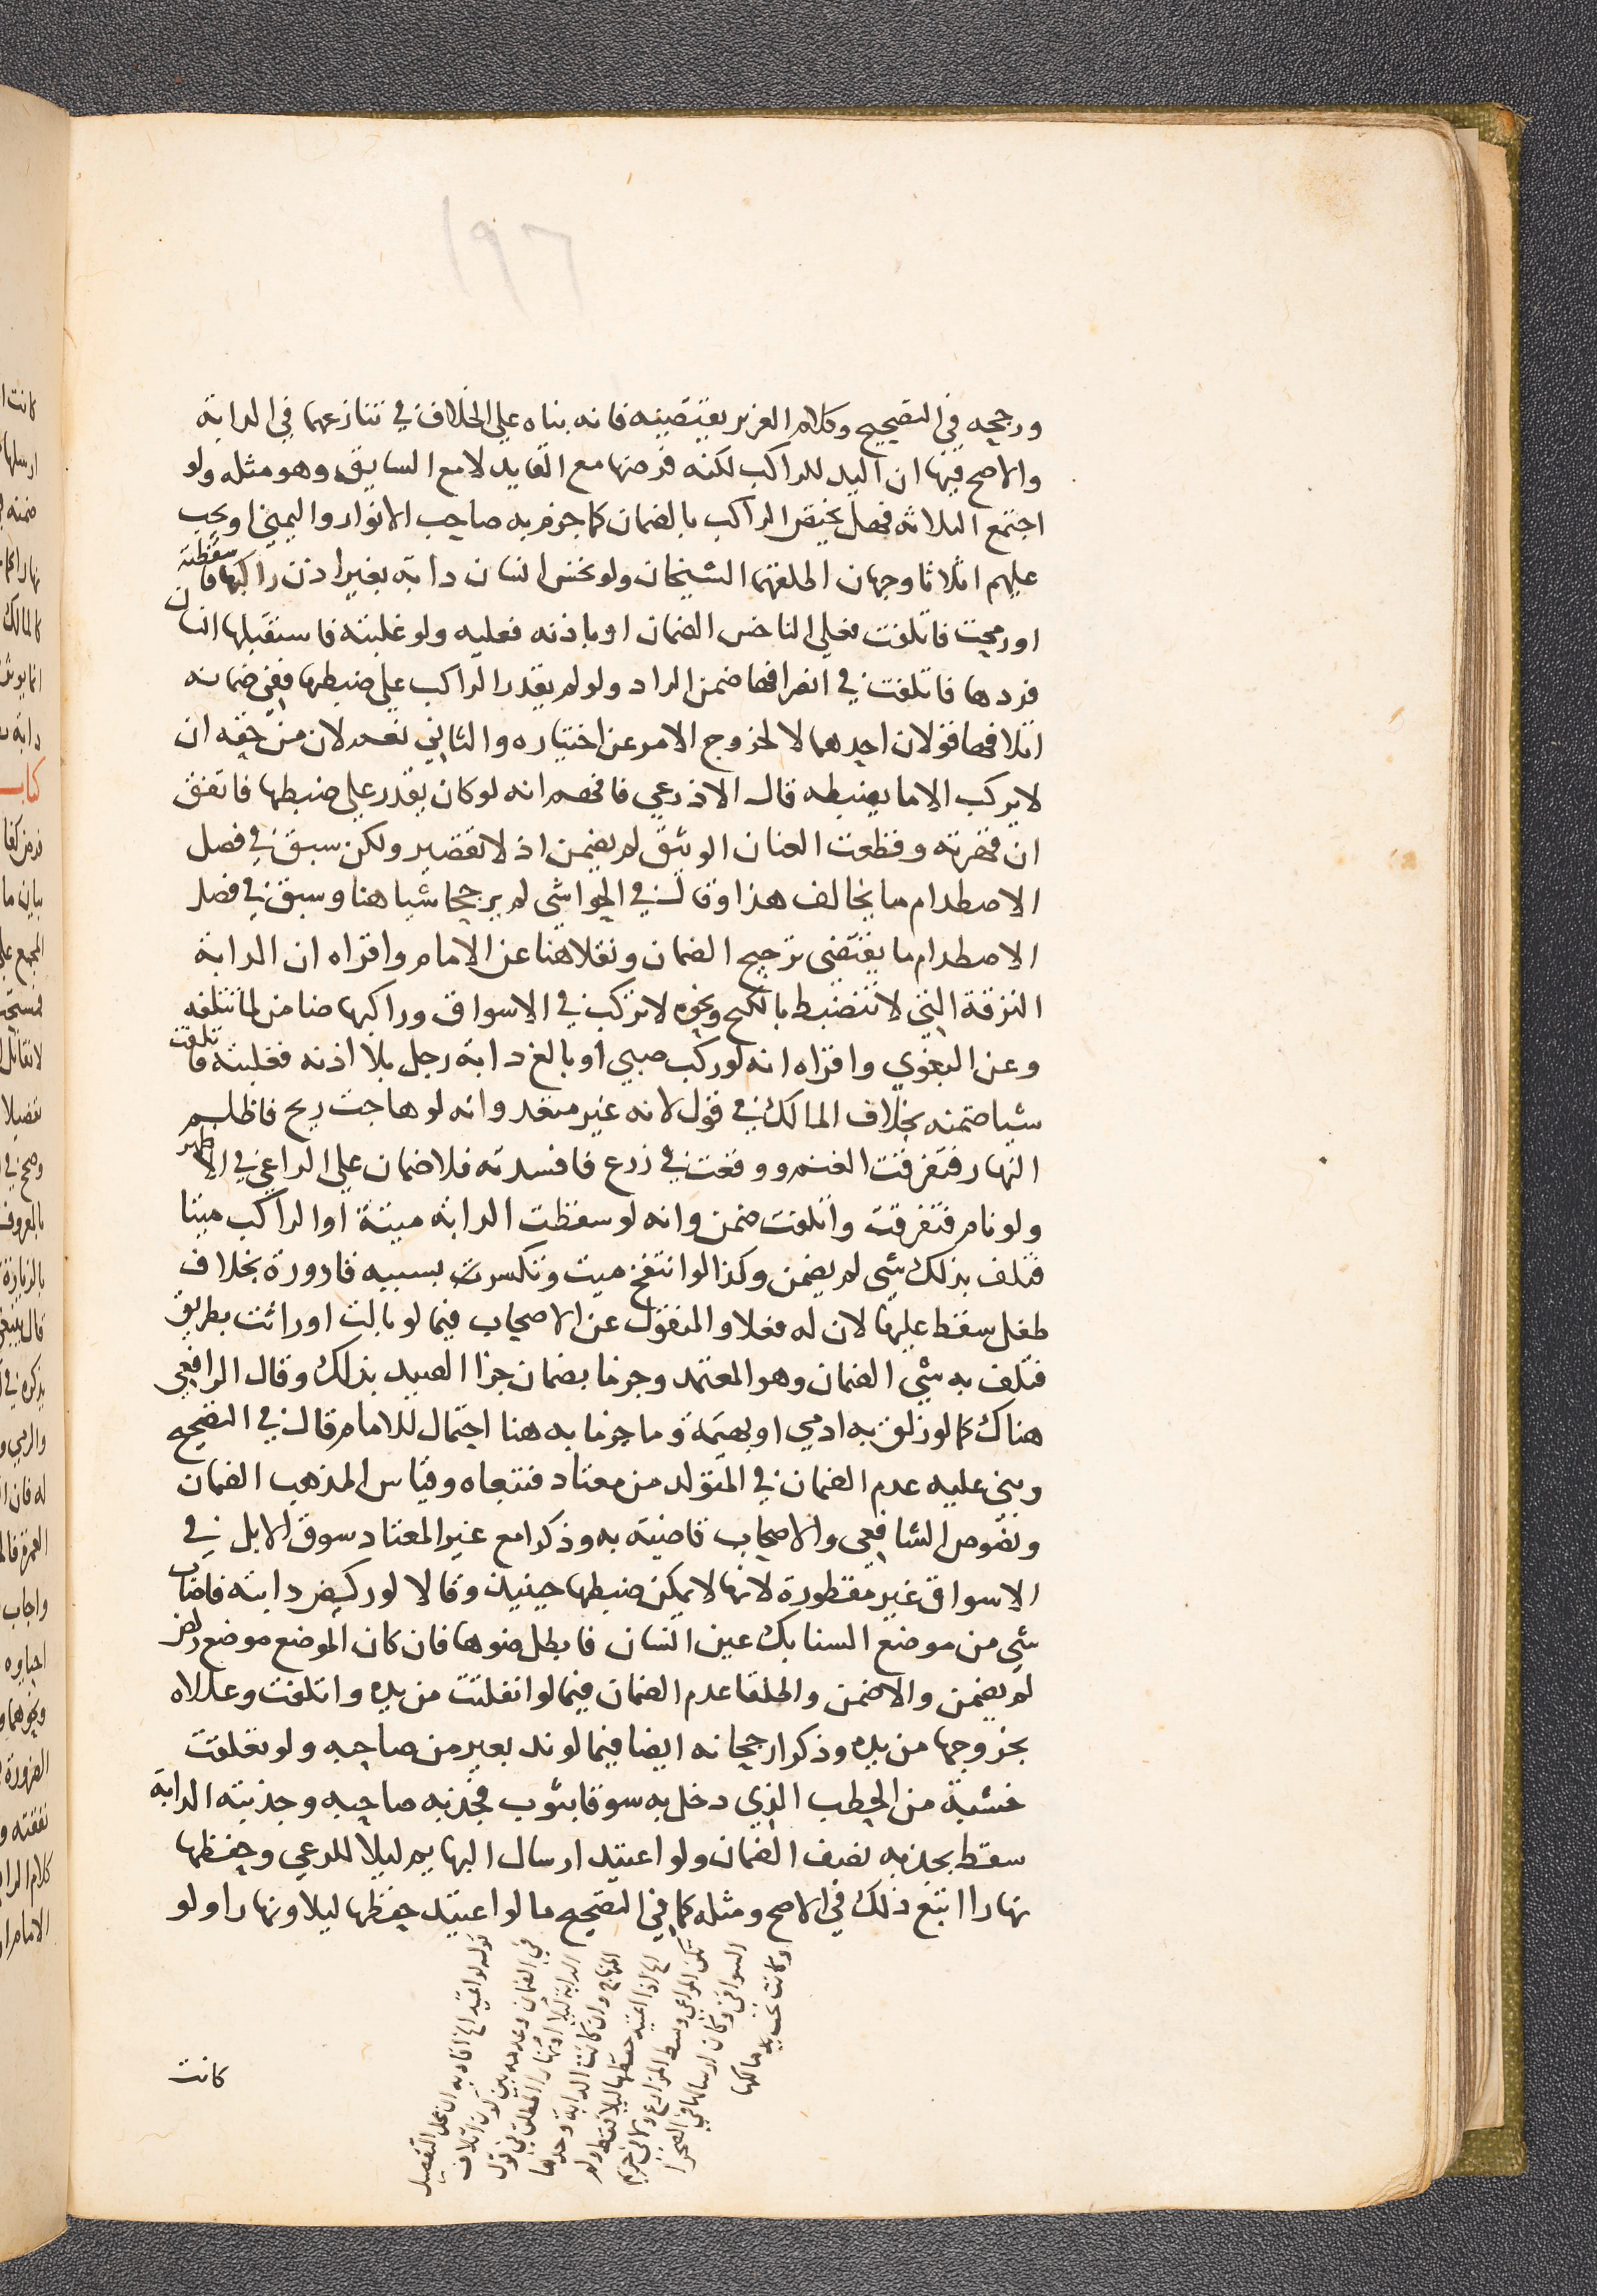 ١٩٦
ورجحه في التصحيح وكلام العزيز يقتضيه فانه بناه على الخلاف في تنازعهما في الدابة
والاصح فيها ان اليد للراكب لكنه فرضها مع القايد لا مع السايق وهو مثله ولو
اجتمع الثلاثة فهل يختص الراكب بالضمان كما جزم به صاحب الانوار واليمني او يجب
عليهم اثلاثا وجهان اطلقهما الشيخان ولو نخس انسان دابة بغير اذن راكبها فاسقطته
او رمحت فاتلفت فعلى الناخس الضمان او باذنه فعليه ولو غلبته فاستقبلها انسان
فردها فاتلفت في انصرافها ضمن الراد ولو لم يقدر الراكب على ضبطها ففي ضمانه
اتلافها قولان احدهما لا لخروج الامر عن اختياره والثاني نعم لان من حقه ان
لا يركب الا ما يضبطه قال الاذرعي فافهم انه لو كان يقدر على ضبطها فاتفق
ان قهرته وقطعت العنان الوثيق لم يضمن اذ لا تقصير ولكن سبق في فصل
الاصطدام ما يخالف هذا وقال في الحواشي لم يرجحا شيا هنا وسبق في فصل
الاصطدام ما يقتضي ترجيح الضمان ونقلا هنا عن الامام واقراه ان الدابة
النزقة التي لا تنضبط بالكبح ونحوه لا تركب في الاسواق وراكبها ضامن لما تتلفه
وعن البغوي واقراه انه لو ركب صبي او بالغ دابة رجل بلا اذنه فغلبته فاتلفت
شيا ضمنه بخلاف المالك في قول لانه غير متعد وانه لو هاجت ريح فاظلم
النهار فتفرقت الغنم ووقعت في زرع فافسدته فلا ضمان على الراعي في الاظهر
ولو نام فتفرقت واتلفت ضمن وانه لو سقطت الدابة ميتة او الراكب ميتا
فتلف بذلك شي لم يضمن وكذا لو انتفخ ميت وتكسرت بسببه قارورة بخلاف
طفل سقط عليها لان له فعلا والمنقول عن الاصحاب فيما لو بالت او راثت بطريق
فتلف به شي الضمان وهو المعتمد وجزما بضمان جزا الصيد بذلك وقال الرافعي
هناك كما لو زلق به ادمي او بهيمة وما جزما به هنا احتمال للامام قال في التصحيح
وبنى عليه عدم الضمان في المتولد من معتاد فتبعاه وقياس المذهب الضمان
ونصوص الشافعي والاصحاب قاضية به وذكرا مع غير المعتاد سوق الابل في
الاسواق غير مقطورة لانها لا يمكن ضبطها حينيذ وقالا لو ركض دابته فاصاب
شي من موضع السنابك عين انسان فابطل ضوها فان كان الموضع موضع ركض
لم يضمن والا ضمن واطلقا عدم الضمان فيما لو انفلتت من يده واتلفت وعللاه
بخروجها من يده وذكرا رجحانه ايضا فيما لو ند بعير من صاحبه ولو تعلقت
خشبة من الحطب الذي دخل به سوقا بثوب فجذبه صاحبه وجذبته الدابة
سقط بجذبه نصف الضمان ولو اعتيد ارسال البهايم ليلا للرعي وحفظها
نهارا اتبع ذلك في الاصح ومثله كما في التصحيح ما لو اعتيد حفظها ليلا ونهارا ولو
قوله لو اعتيد الخ افاد به ان محل التفصيل
في الضمان وعدمه بين كون اتلاف
الدابة ليلا او نهارا المطلق في قول
المنهاج وان كانت الدابة وحدها
الخ اذا اعتيد حفظها ليلا فقط ولم
تكن المراعي وسط المزارع او في حريم
السواقي وكان ارسالها في الصحرا
وكانت تحت يد مالكها
كانت